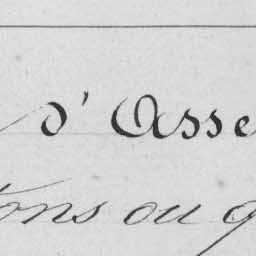 d'Asse
ons ou q